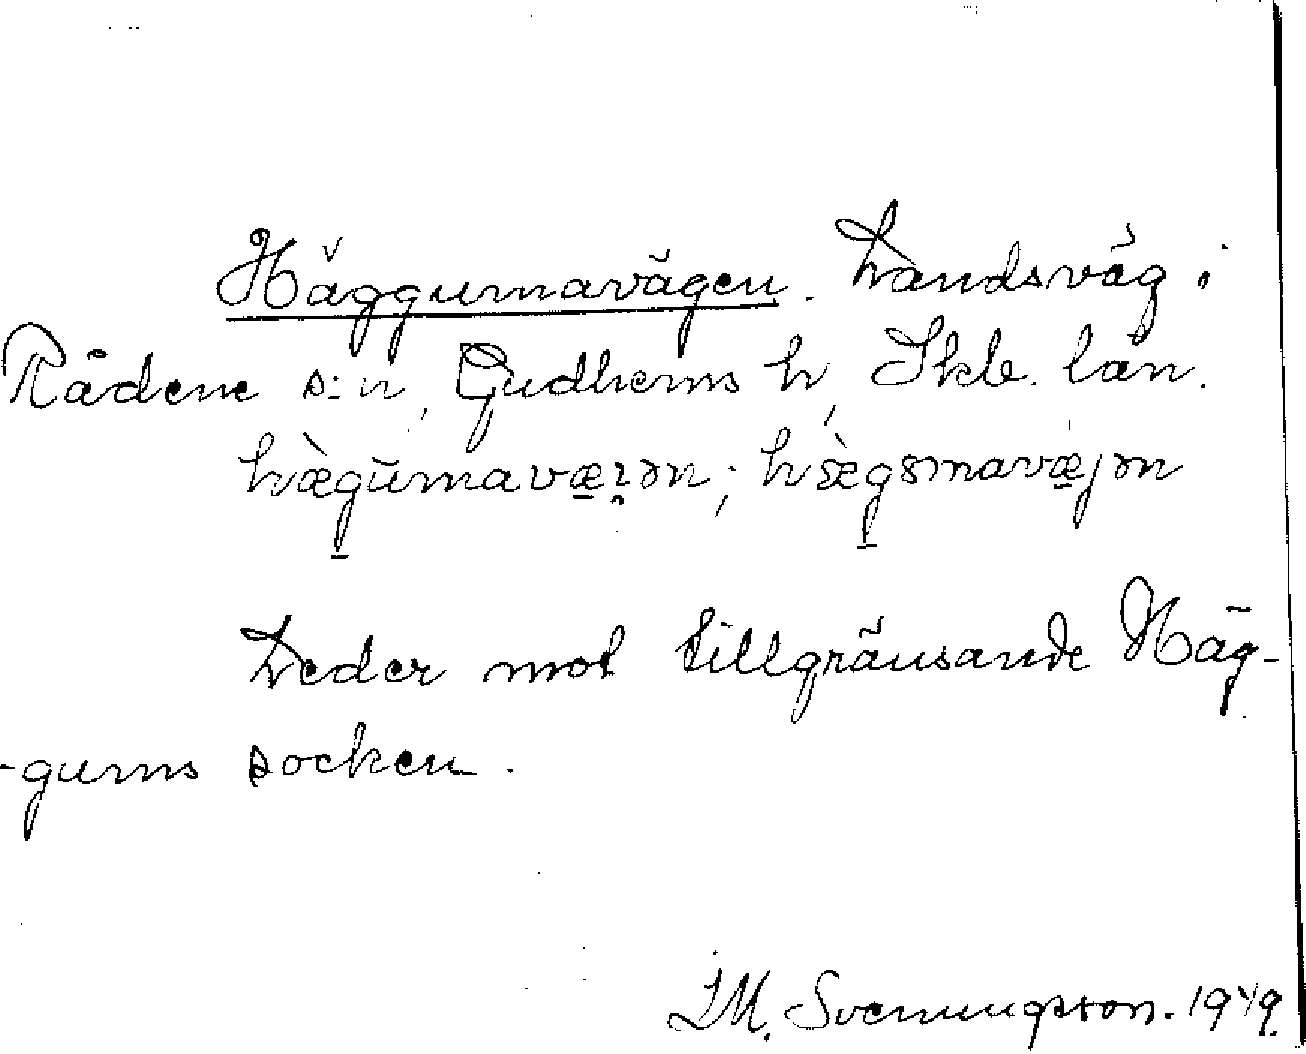 Häggumavägen. Landsväg i
Rådene s:n, Gudhems h, Skb. län.
hæ̀gumavæ̱ʒən; hæ̀gsmavæ̱jən
Leder mot tillgränsande Häg-
-gums socken.
I.M. Svenungsson. 1949.